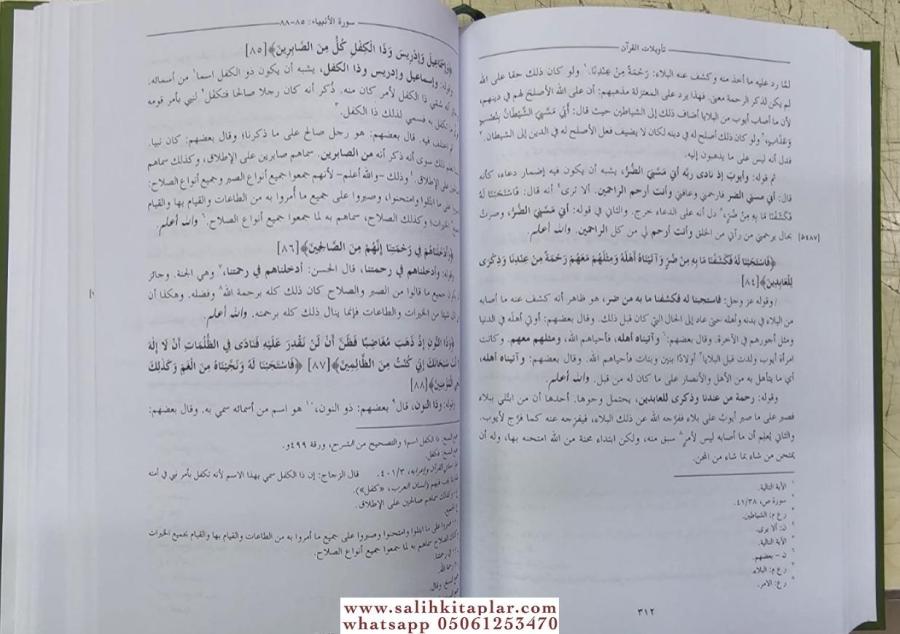 تأويلات القرآن
لمّا رد عليه ما أخذ منه وكشف عنه البلاء: رَحْمَةً مِنْ عِنْدِنَا. ولو كان ذلك حقا على الله
لم يكن لذكر الرحمة معنى. فهذا يرد على المعتزلة مذهبهم: أن على الله الأصلح لهم في دينهم،
لأن ما أصاب أيوب من البلايا أضاف ذلك إلى الشياطين حيث قال: أَنِّي مَسَّنِيَ الشَّيْطَانُ بِنُصْبٍ
وَعَذَابٍ، ولو كان ذلك أصلح له في دينه لكان لا يضيف فعل الأصلح له في الدين إلى الشيطان.
فدل أنه ليس على ما يذهبون إليه.
ثم قوله: وأيوب إذ نادى ربه أني مَسَّنِيَ الضُّرُّ، يشبه أن يكون فيه إضمار دعاء، كأنه
قال: أني مسني الضر فارحمني وعافني وأنت أرحم الراحمين. ألا ترى أنه قال: فَاسْتَجَبْنَا لَهُ
فَكَشَفْنَا مَا بِهِ مِنْ ضُرٍّ، دل أنه على الدعاء خرج. والثاني في قوله: أَنِّي مَسَّنِيَ الضُّرُّ، وصرتُ
بحال يرحمني من رآني من الخلق وأنت أرحم لي من كل الراحمين. والله أعلم.
[٤٨٧و]
﴿فَاسْتَجَبْنَا لَهُ فَكَشَفْنَا مَا بِهِ مِنْ ضُرٍّ وَآتَيْنَاهُ أَهْلَهُ وَمِثْلَهُمْ مَعَهُمْ رَحْمَةً مِنْ عِنْدِنَا وَذِكْرَى
لِلْعَابِدِينَ﴾[٨٤]
وقوله عز وجل: فاستجبنا له فكشفنا ما به من ضر، هو ظاهر أنه كشف عنه ما أصابه
من البلاء في بدنه وأهله حتى عاد إلى الحال التي كان قبل ذلك. وقال بعضهم: أوتي أهله في الدنيا
ومثل أجورهم في الآخرة. وقال بعضهم: وآتيناه أهله، فأحياهم الله، ومثلهم معهم. وكانت
امرأة أيوب ولدت قبل البلايا أولادًا بنين وبنات فأحياهم الله. وقال بعضهم: وآتيناه أهله،
أي ما يتأهل به من الأهل والأنصار على ما كان له من قبل. والله أعلم.
وقوله: رحمة من عندنا وذكرى للعابدين، يحتمل وجوها. أحدها أن من ابتُلي ببلاء
فصبر على ما صبر أيوبُ على بلاء ففرّجه الله عن ذلك البلاء، فيفرّجه عنه كما فرّج لأيوب.
والثاني يُعلِم أن ما أصابه ليس لأمر سبق منه، ولكن ابتداء محنة من الله امتحنه بها، وله أن
يمتحن من شاء بما شاء من المحن.
الآية التالية.
سورة ص، ٤١/٣٨.
ر ع م: الشياطين.
ن: ألا يرى.
الآية التالية.
ن - بعضهم.
ر ع م: البلاء.
ر ع: الامر.
٣١٢
سورة الأنبياء: ٨٥-٨٨
وَإِسْمَاعِيلَ وَإِدْرِيسَ وَذَا الْكِفْلِ كُلٌّ مِنَ الصَّابِرِينَ﴾[٨٥]
وقوله: وإسماعيل وإدريس وذا الكفل، يشبه أن يكون ذو الكفل اسما من أسمائه.
سُمّي ذا الكفل لأمر كان منه. ذُكر أنه كان رجلا صالحا فتكفل لنبي بأمر قومه
تكفل به فسمي لذلك ذا الكفل.
اختلف فيه. قال بعضهم: هو رجل صالح على ما ذكرنا؛ وقال بعضهم: كان نبيا.
ذلك سوى أنه ذكر أنه كان من الصابرين. سماهم صابرين على الإطلاق، وكذلك سماهم
على الإطلاق. وذلك -والله أعلم- لأنهم جمعوا جميع أنواع الصبر وجميع أنواع الصلاح:
على ما ابتلوا وامتحنوا، وصبروا على جميع ما أُمروا به من الطاعات والقيام بها والقيام
الخيرات؛ وكذلك الصلاح، سماهم به لما جمعوا جميع أنواع الصلاح. والله أعلم.
﴿وَأَدْخَلْنَاهُمْ فِي رَحْمَتِنَا إِنَّهُمْ مِنَ الصَّالِحِينَ﴾[٨٦]
وقوله: وأدخلناهم في رحمتنا، قال الحسن: أدخلناهم في رحمتنا، وهي الجنة. وجائز
جميع ما قالوا من الصبر والصلاح كان ذلك كله برحمة الله وفضله. وهكذا أن
شيئا من الخيرات والطاعات فإنما ينال ذلك كله برحمته. والله أعلم.
﴿وَذَا النُّونِ إِذْ ذَهَبَ مُغَاضِبًا فَظَنَّ أَنْ لَنْ نَقْدِرَ عَلَيْهِ فَنَادَى فِي الظُّلُمَاتِ أَنْ لَا إِلَهَ
سُبْحَانَكَ إِنِّي كُنْتُ مِنَ الظَّالِمِينَ﴾[٨٧] ﴿فَاسْتَجَبْنَا لَهُ وَنَجَّيْنَاهُ مِنَ الْغَمِّ وَكَذَلِكَ
الْمُؤْمِنِينَ﴾[٨٨]
وقوله: وذا النون، قال بعضهم: ذو النون، هو اسم من أسمائه سمي به. وقال بعضهم:
ذا الكفل اسم؛ والتصحيح من الشرح، ورقة ٤٩٩و.
معاني القرآن وإعرابه، ٤٠١/٣. قال الزجاج: إن ذا الكفل سمي بهذا الاسم لأنه تكفل بأمر نبي في أمته
(لسان العرب، «كفل»).
وكذلك سماهم صالحين على الإطلاق.
على ما ابتلوا وامتحنوا وصبروا على جميع ما أمروا به من الطاعات والقيام بها والقيام بجميع الخيرات
سماهم به لما جمعوا جميع أنواع الصلاح.
www.salihkitaplar.com
whatsapp 05061253470